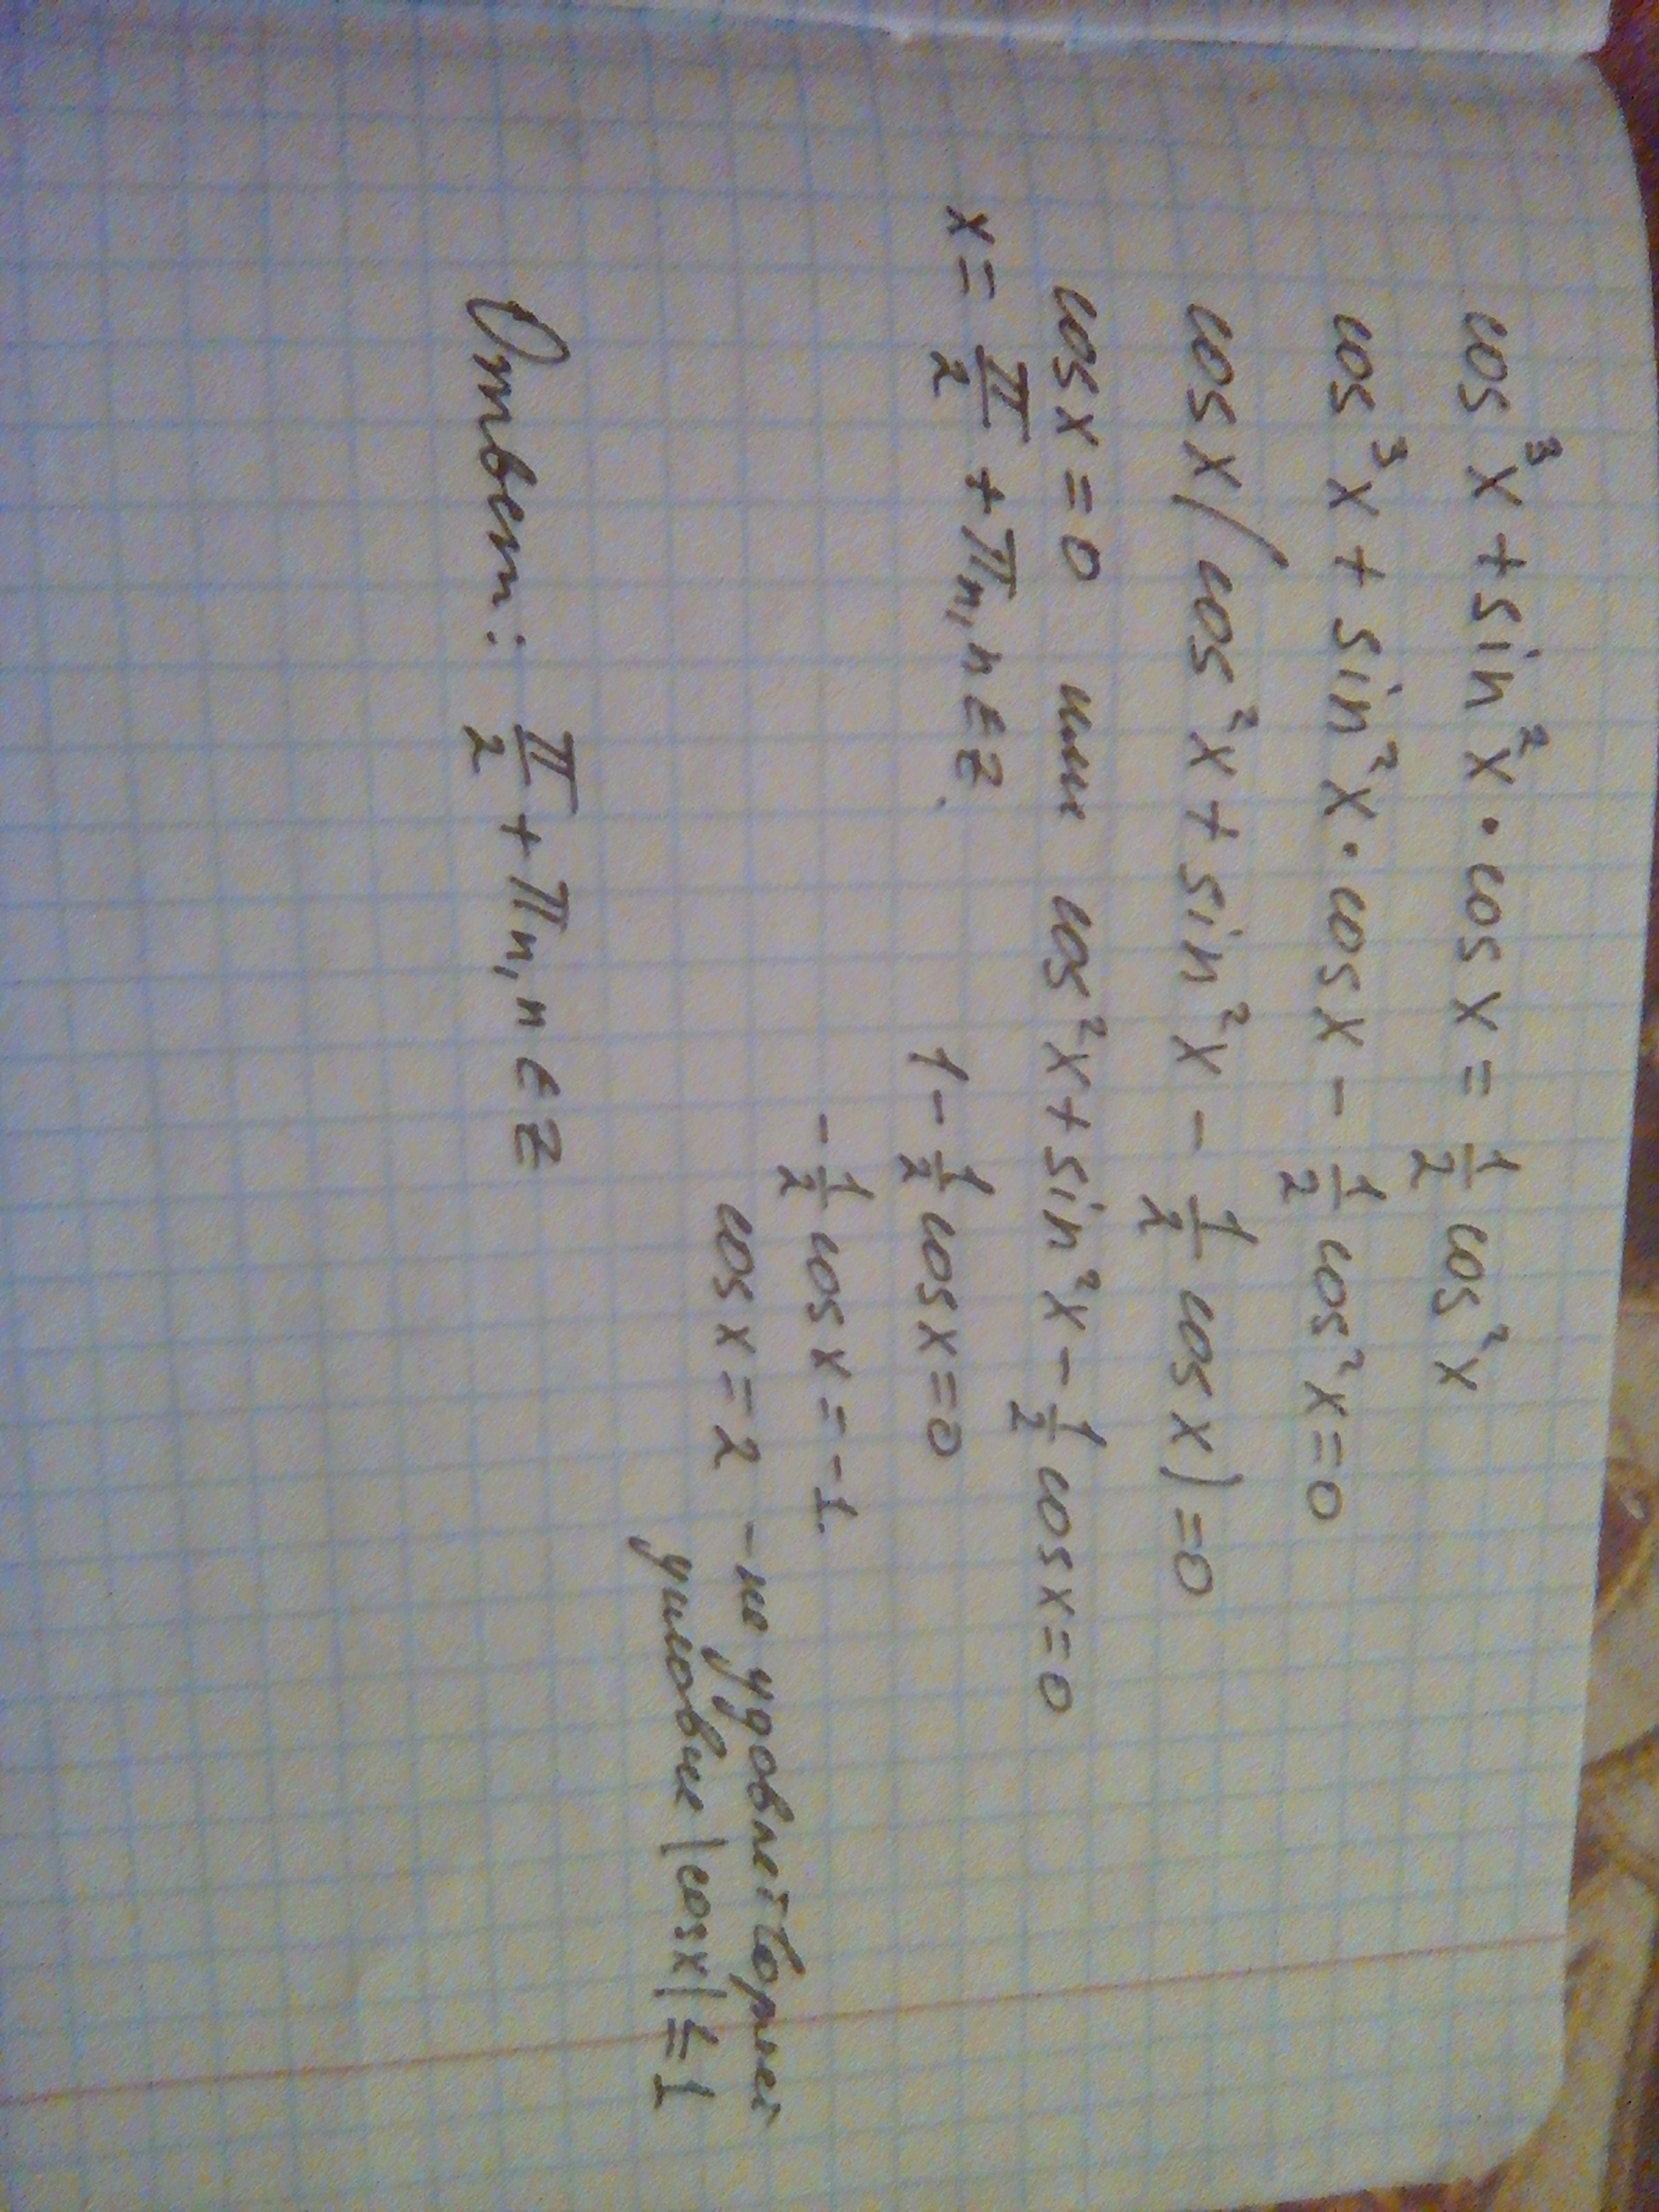 cos³x + sin²x · cos x = 1/2 cos²x
cos³x + sin²x · cos x − 1/2 cos²x = 0
cos x (cos²x + sin²x − 1/2 cos x) = 0
cos x = 0 или cos²x + sin²x − 1/2 cos x = 0
x = π/2 + πn, n ∈ Z
1 − 1/2 cos x = 0
− 1/2 cos x = −1
cos x = 2 – не удовлетворяет
условие |cos x| ≤ 1
Ответ: π/2 + πn, n ∈ Z